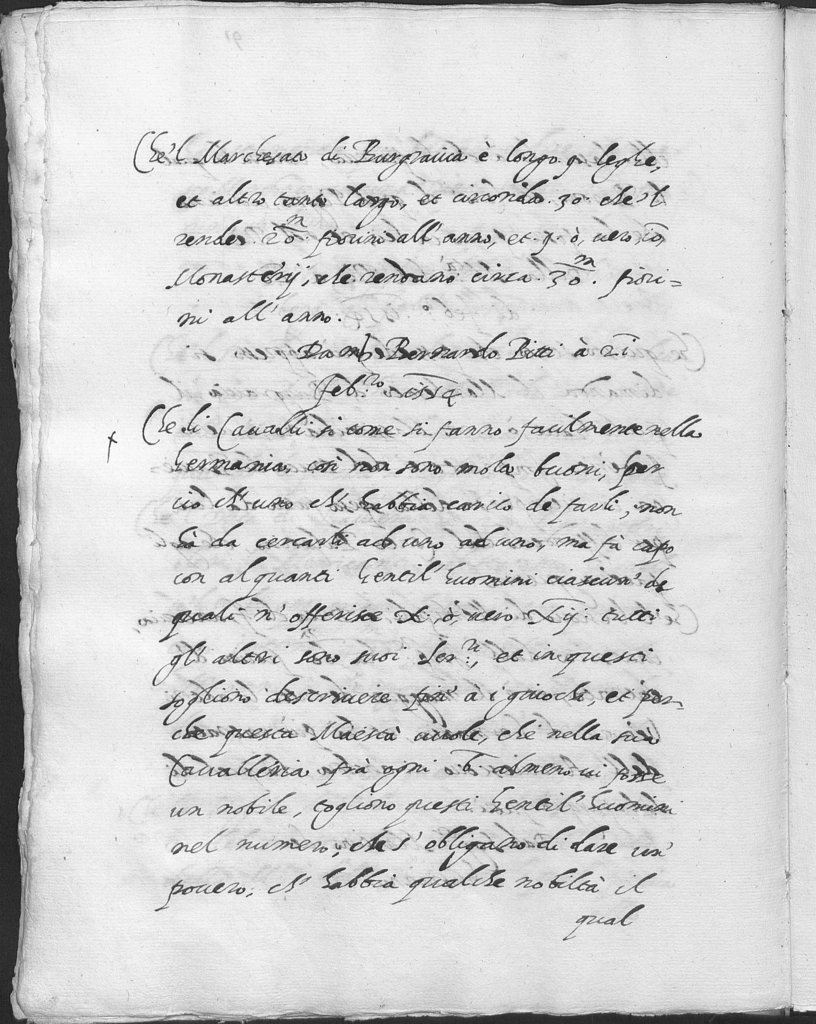 Che'l Marchesato di Burgravia è longo 9. leghe,
et altro tanto largo, et circonda .30. che'l
rende .20.m fiorini all'anno, et .9. ò, vero io
Monasterij, che rendano circa .30.m fiori=
ni all'anno.
Da m. Bernardo Pitti à 21
Feb.ro 1554
Che li Cavalli si come si fanno facilmente nella
Germania, così non sono molto buoni, per
ciò ch'uno ch'habbia carico de farli, non
hà da cercarli ad uno ad uno, ma fà capo
con alquanti gentil'huomini ciascun' de
quali n'offerisce X. ò, vero Xij tutti
gl'altri sono suoi Ser.ri, et in questi
sogliono descrivere fin' a i cuochi, et per-
che questa Maestà vuole, che nella sua
Cavalleria frà ogni 6. almeno vi fosse
un nobile, togliono questi gentil'huomini
nel numero, che s'obligano di dare un'
povero, ch'habbia qualche nobiltà il
qual